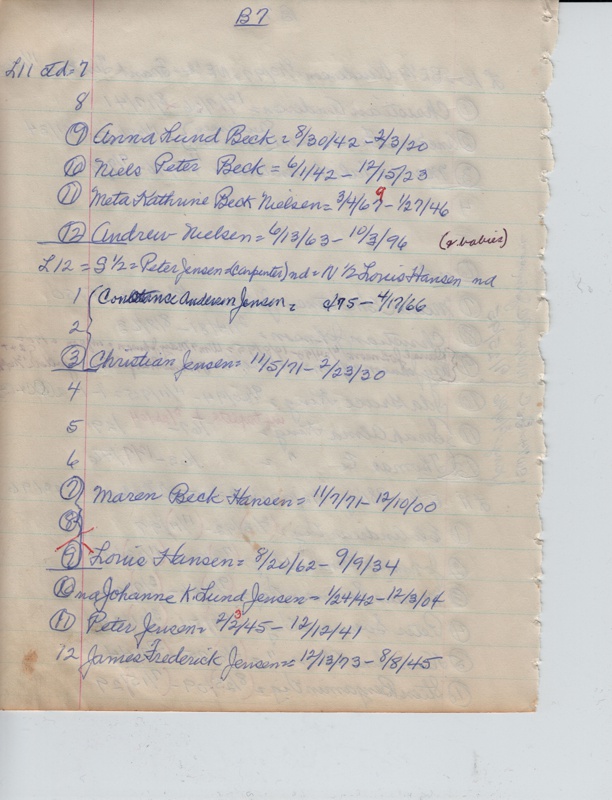 B7
L11 = 7
8
9 Anna Lund Beck = 8/30/42 - 2/3/20
10 Niels Peter Beck = 6/1/42 - 12/15/23
11 Meta Kathrine Beck Nielsen = 3/4/67 9 - 1/27/46
12 Andrew Nielsen = 6/13/63 - 10/3/96 (2 babies)
L12 = S 1/2 = Peter Jensen (carpenter) nd = N 1/2 Louis Hansen nd
1 (Constance Andersen Jensen = 75 - 4/17/66
2
3 Christian Jensen = 11/5/71 - 2/23/30
4
5
6
7 Maren Beck Hansen = 11/7/71 - 12/10/00
8
9 Louis Hansen = 8/20/62 - 9/9/34
10 na Johanne K. Lund Jensen = 1/24/42 - 12/3/04
11 Peter Jensen = 2/2/45 - 12/12/41
12 James Frederick Jensen = 12/13/73 - 8/8/45